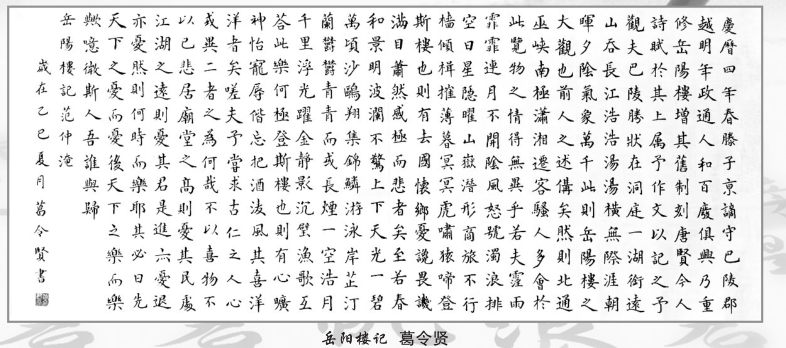 慶曆四年春滕子京謫守巴陵郡
越明年政通人和百廢俱興乃重
修岳陽樓增其舊制刻唐賢今人
詩賦於其上属予作文以記之予
觀夫巴陵勝狀在洞庭一湖銜遠
山吞長江浩浩湯湯橫無際涯朝
暉夕陰氣象萬千此則岳陽樓之
大觀也前人之述備矣然則北通
巫峽南極瀟湘遷客騷人多會於
此覽物之情得無異乎若夫霪雨
霏霏連月不開陰風怒號濁浪排
空日星隱曜山嶽潛形商旅不行
檣傾楫摧薄暮冥冥虎嘯猿啼登
斯樓也則有去國懷鄉憂讒畏譏
滿目蕭然感極而悲者矣至若春
和景明波瀾不驚上下天光一碧
萬頃沙鷗翔集錦鱗游泳岸芷汀
蘭鬱鬱青青而或長煙一空浩月
千里浮光躍金靜影沉璧漁歌互
答此樂何極登斯樓也則有心曠
神怡寵辱偕忘把酒臨風其喜洋
洋者矣嗟夫予嘗求古仁之人心
或異二者之為何哉不以喜物不
以己悲居廟堂之高則憂其民處
江湖之遠則憂其君是進亦憂退
亦憂然則何時而樂耶其必曰先
天下之憂而憂後天下之樂而樂
歟噫微斯人吾誰與歸
岳陽樓記范仲淹
歲在己巳夏月葛令賢書
岳阳楼记 葛令贤